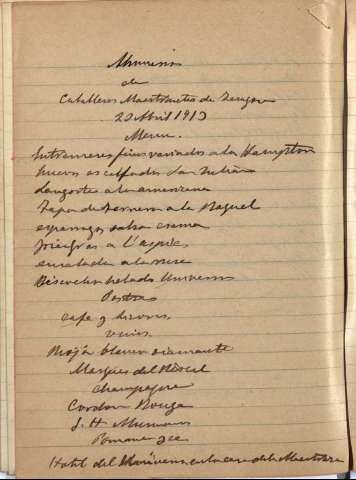 Almuerzo
de
Caballeros Maestrantes de Zaragoza
20 Abril 1913
Menu.
Entremeses finos variados a la Hampton
huevos escalfados San Julian
Langosta a la americana
de ternera a la Raquel
esparragos salsa crema
foiegras a l'aspic
ensalada a la rusa
Biscochos helados
Postres
Cafe y licores
vinos
Rioja blanco diamante
Marques del Riscal
Champagne
Cordon Rouge
G. H. Mumm
Hotel del en la casa de la Maestranza